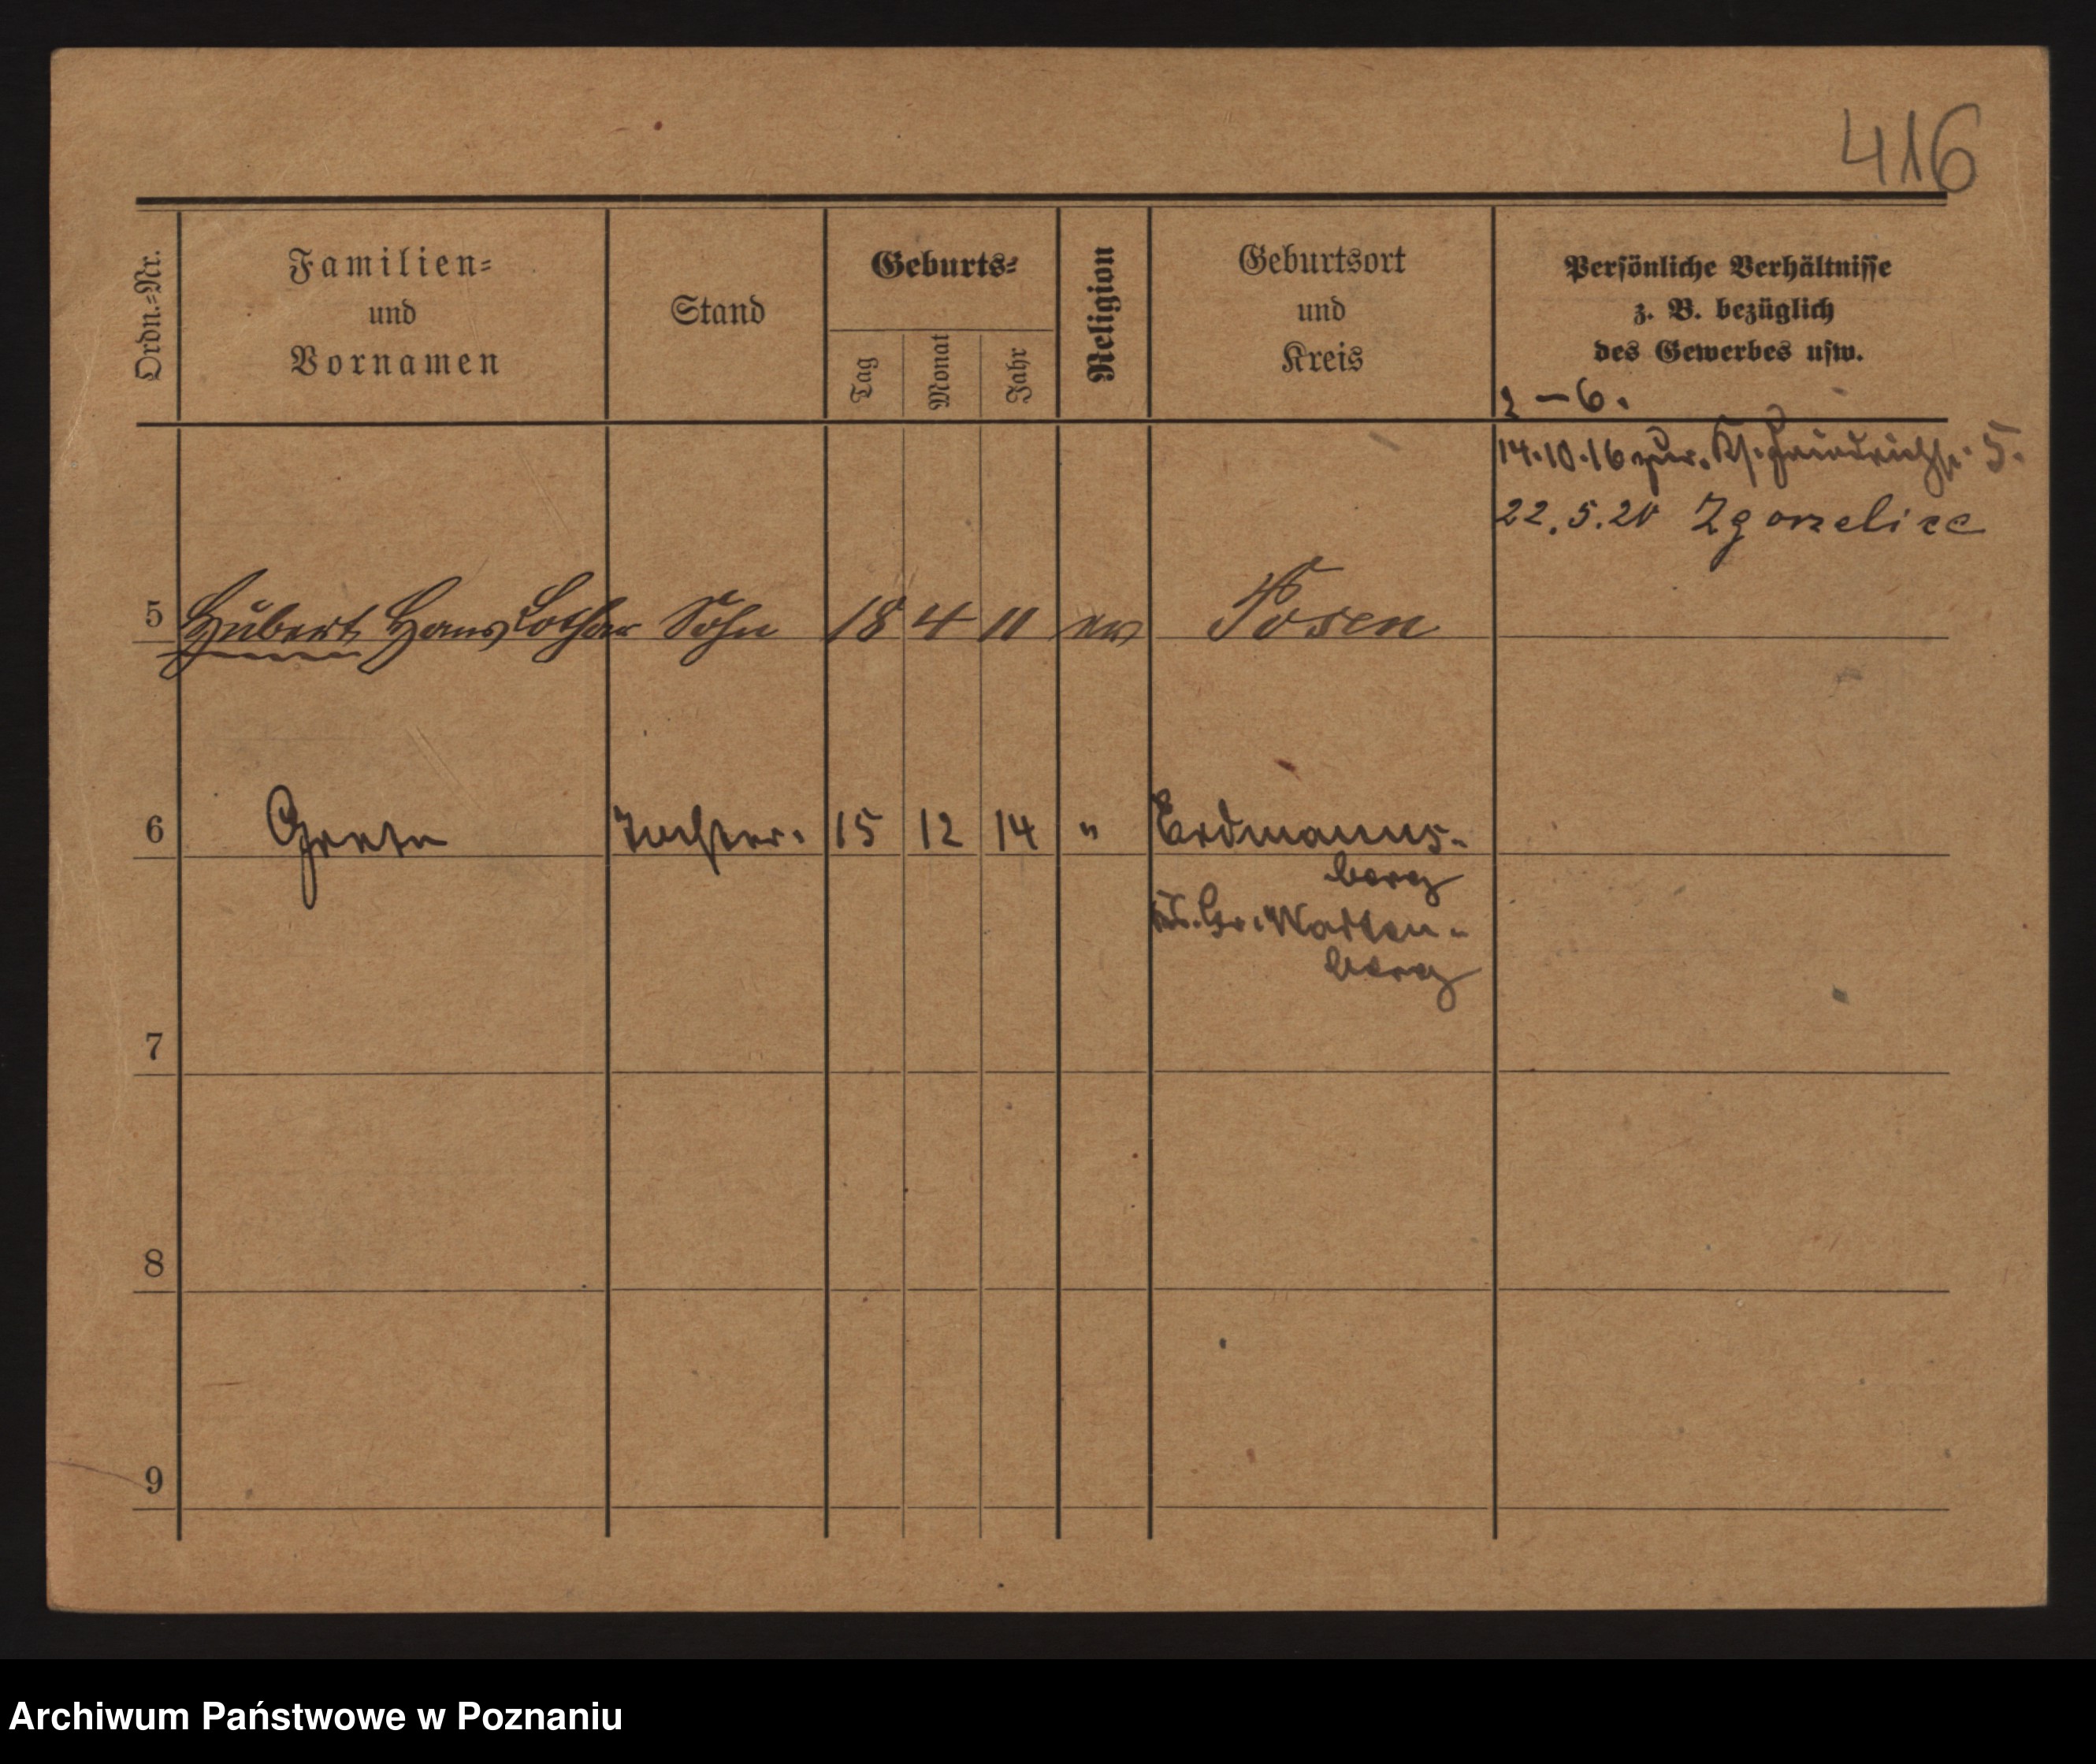 416
Ordn.-Nr.
Familien-
und
Vornamen
Stand
Geburts-
Tag
Monat
Jahr
Religion
Geburtsort
und
Kreis
Persönliche Verhältnisse
z. B. bezüglich
des Gewerbes usw.
2-6.
14.10.16 zur. Friedrichstr. 5.
22.5.20 Zgorzelice
5 Hubert Hans Lothar Sohn 18 4 11 ev Posen
6 Grete Tochter. 15 12 14 " Erdmanns-
berg
Kr. Gr. Warten-
berg
7
8
9
Archiwum Państwowe w Poznaniu